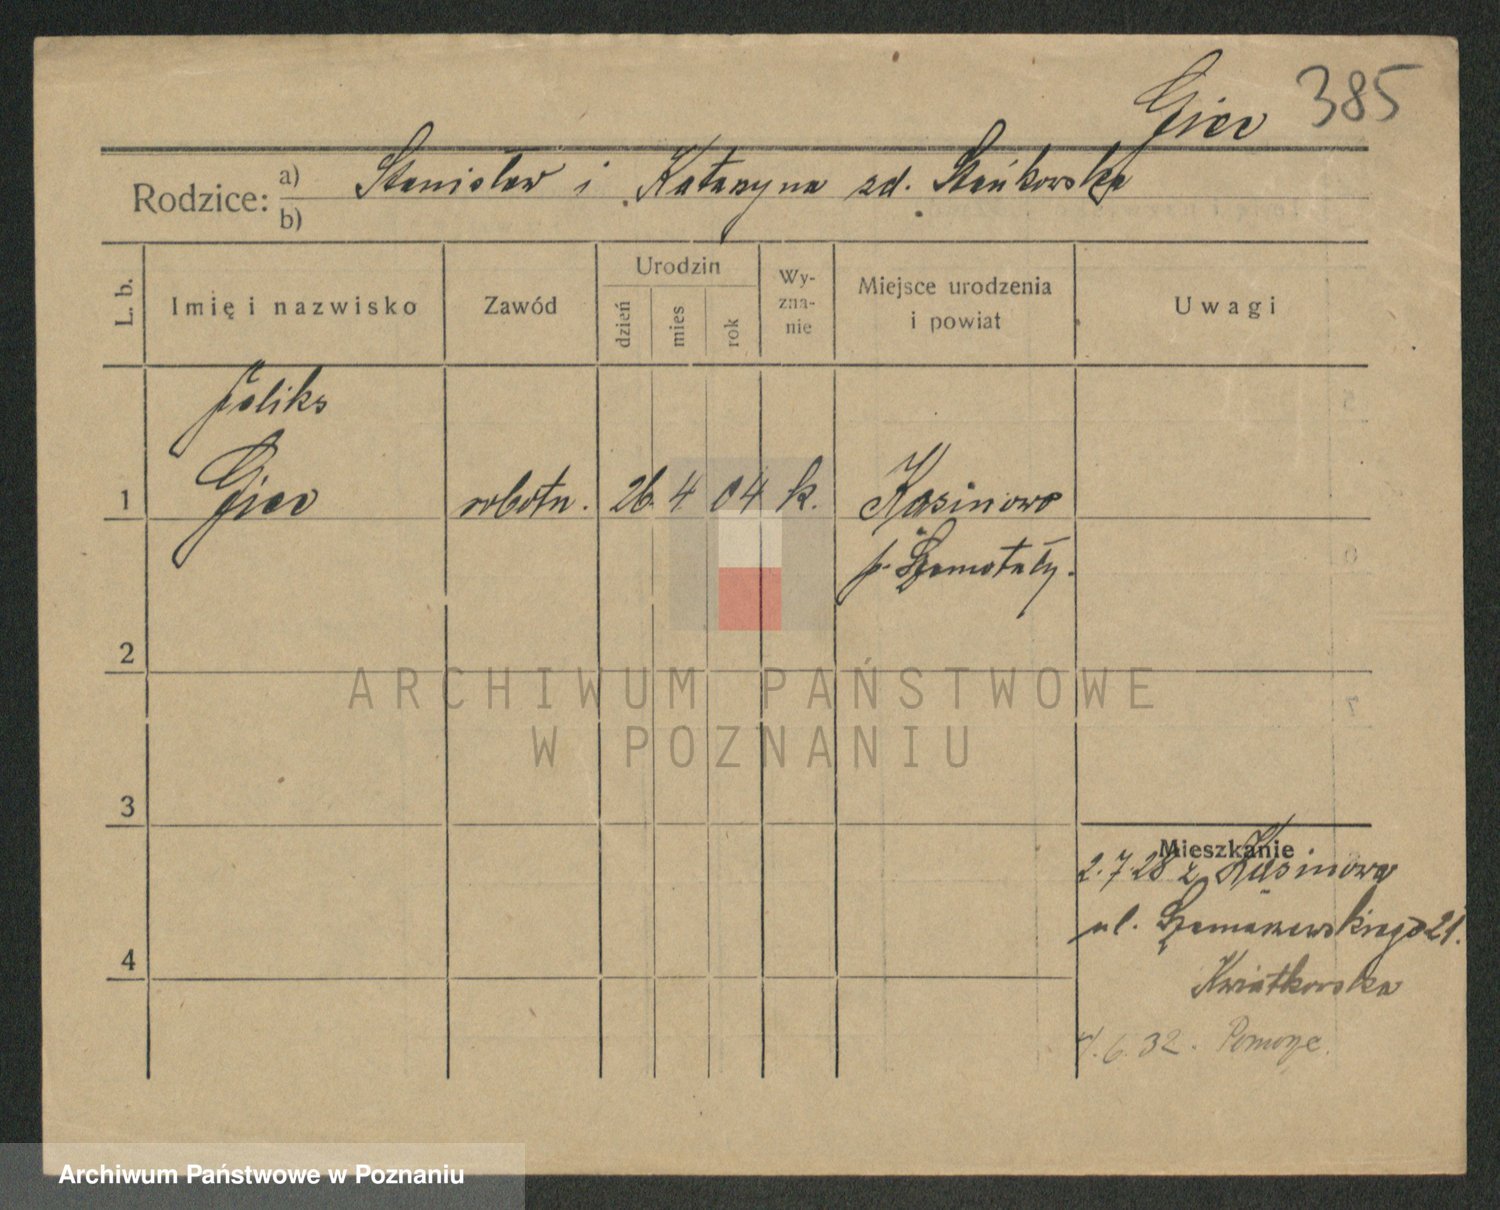 Giec 385
Rodzice: a) Stanisław i Katarzyna zd. Stańkowska
b)
L. b. Imię i nazwisko Zawód Urodzin dzień mies rok Wy-zna-nie Miejsce urodzenia i powiat Uwagi
Feliks
1 Giec robotn. 26 4 04 k. Kasinowo
p. Szamotuły.
2
ARCHIWUM PAŃSTWOWE
W POZNANIU
3
Mieszkanie
2.7 28 z Kasinowo
ul. Szamarzewskiego 21.
4
Kwiatkowska
6. 32.
Archiwum Państwowe w Poznaniu